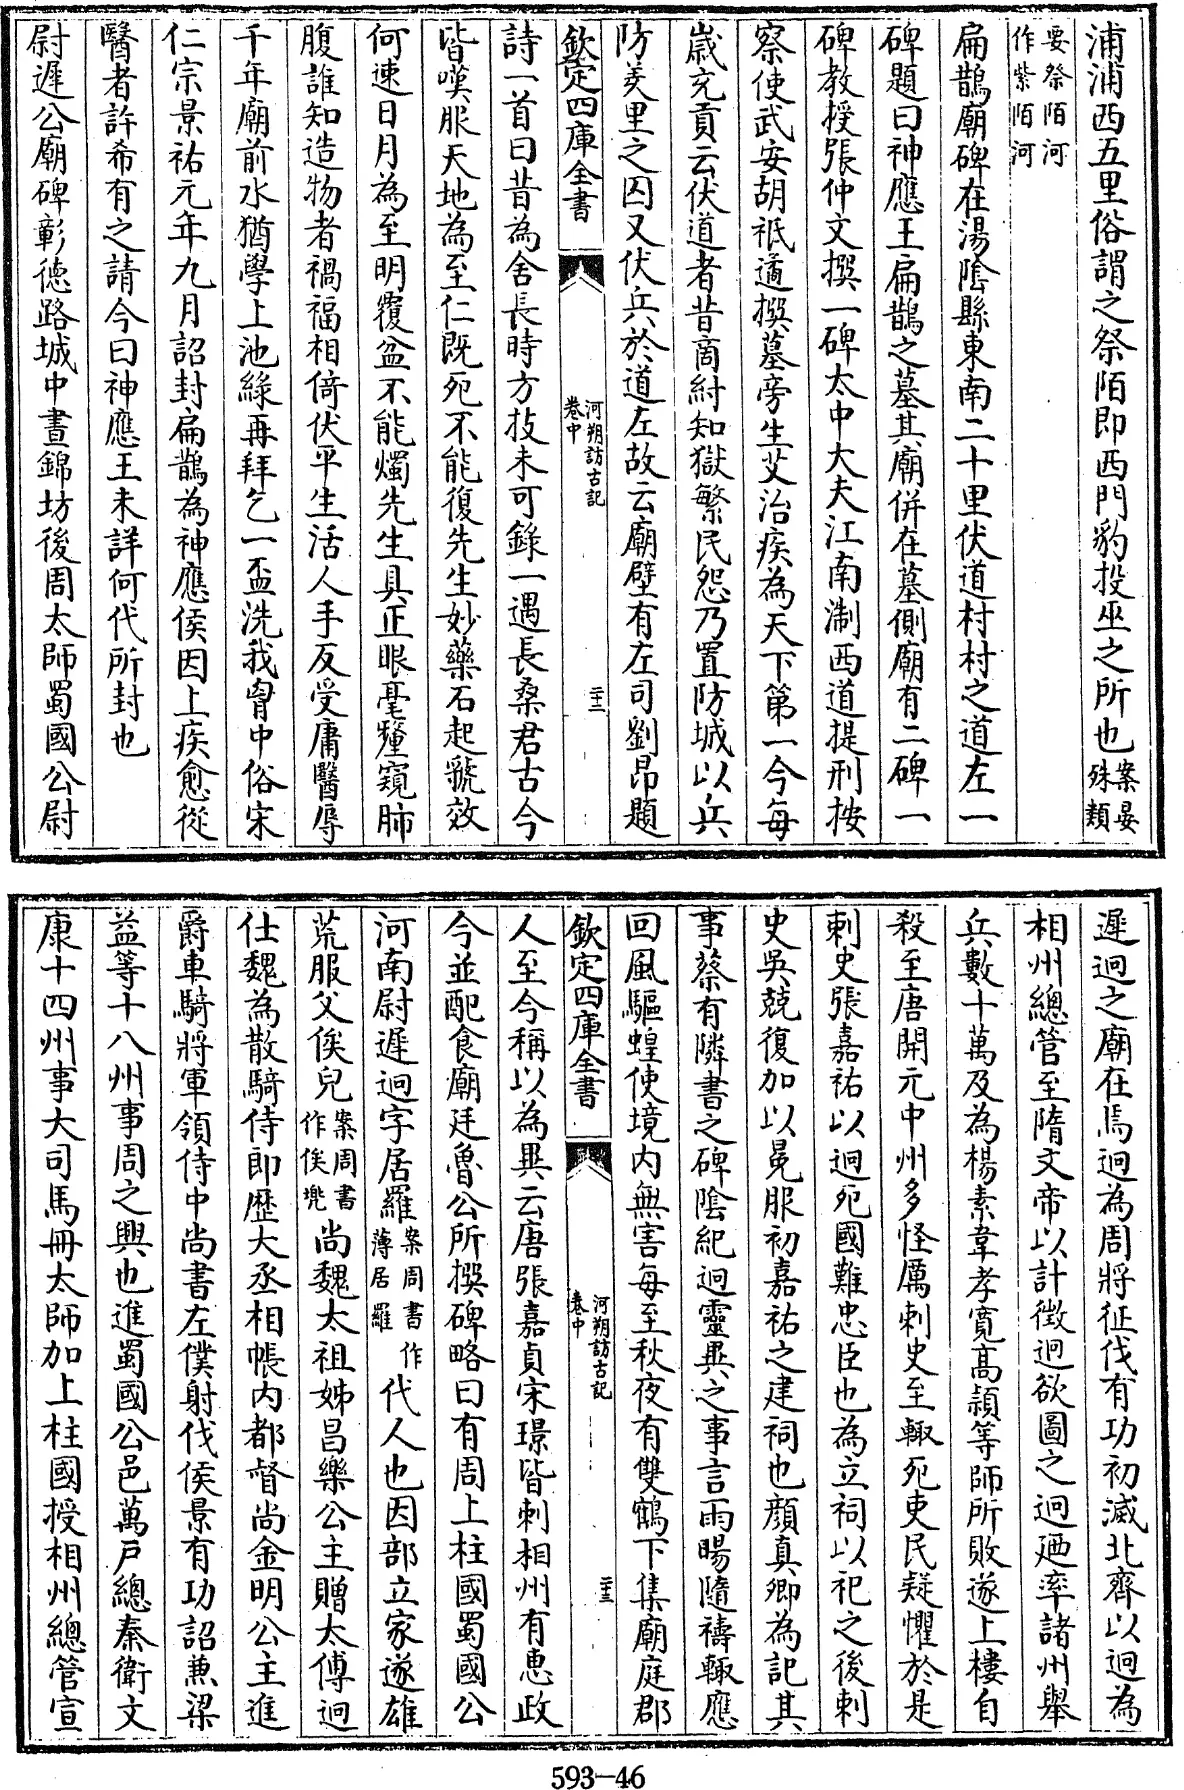 浦浦西五里俗謂之祭陌即西門豹投巫之所也案晏殊類
要祭陌河作紫陌河
扁鵲廟碑在湯隂縣東南二十里伏道村村之道左一
碑題曰神應王扁鵲之墓其廟併在墓側廟有二碑一
碑教授張仲文撰一碑太中大夫江南淛西道提刑按
察使武安胡祗遹撰墓旁生艾治疾為天下第一今每
嵗充貢云伏道者昔商紂知獄繁民怨乃置防城以兵
防羑里之囚又伏兵於道左故云廟壁有左司劉昂題
欽定四庫全書
河朔訪古記
卷中
二十二
詩一首曰昔為舍長時方技未可錄一遇長桑君古今
皆嘆服天地為至仁既死不能復先生妙藥石起虢效
何速日月為至明覆盆不能燭先生具正眼毫釐窺肺
腹誰知造物者禍福相倚伏平生活人手反受庸醫辱
千年廟前水猶學上池綠再拜乞一盃洗我胷中俗宋
仁宗景祐元年九月詔封扁鵲為神應侯因上疾愈從
醫者許希有之請今曰神應王未詳何代所封也
尉遲公廟碑彰徳路城中晝錦坊後周太師蜀國公尉
遲迥之廟在焉迥為周將征伐有功初滅北齊以迥為
相州總管至隋文帝以計徴迥欲圖之迥廼率諸州舉
兵數十萬及為楊素韋孝寛髙熲等師所敗遂上樓自
殺至唐開元中州多怪厲刺史至輙死吏民疑懼於是
刺史張嘉祐以迥死國難忠臣也為立祠以祀之後刺
史吳兢復加以冕服初嘉祐之建祠也顔真卿為記其
事蔡有隣書之碑隂紀迥靈異之事言雨暘隨禱輙應
回風驅蝗使境内無害每至秋夜有雙鶴下集廟庭郡
欽定四庫全書
河朔訪古記
卷中
二十三
人至今稱以為異云唐張嘉貞宋璟皆刺相州有恵政
今並配食廟廷魯公所撰碑略曰有周上柱國蜀國公
河南尉遲迥字居羅案周書作薄居羅代人也因部立家遂雄
荒服父俟兒案周書作俟兠尚魏太祖姊昌樂公主贈太傅迥
仕魏為散騎侍郎歴大丞相帳内都督尚金明公主進
爵車騎將軍領侍中尚書左僕射伐侯景有功詔兼梁
益等十八州事周之興也進蜀國公邑萬戸總秦衛文
康十四州事大司馬冊太師加上柱國授相州總管宣
593—46